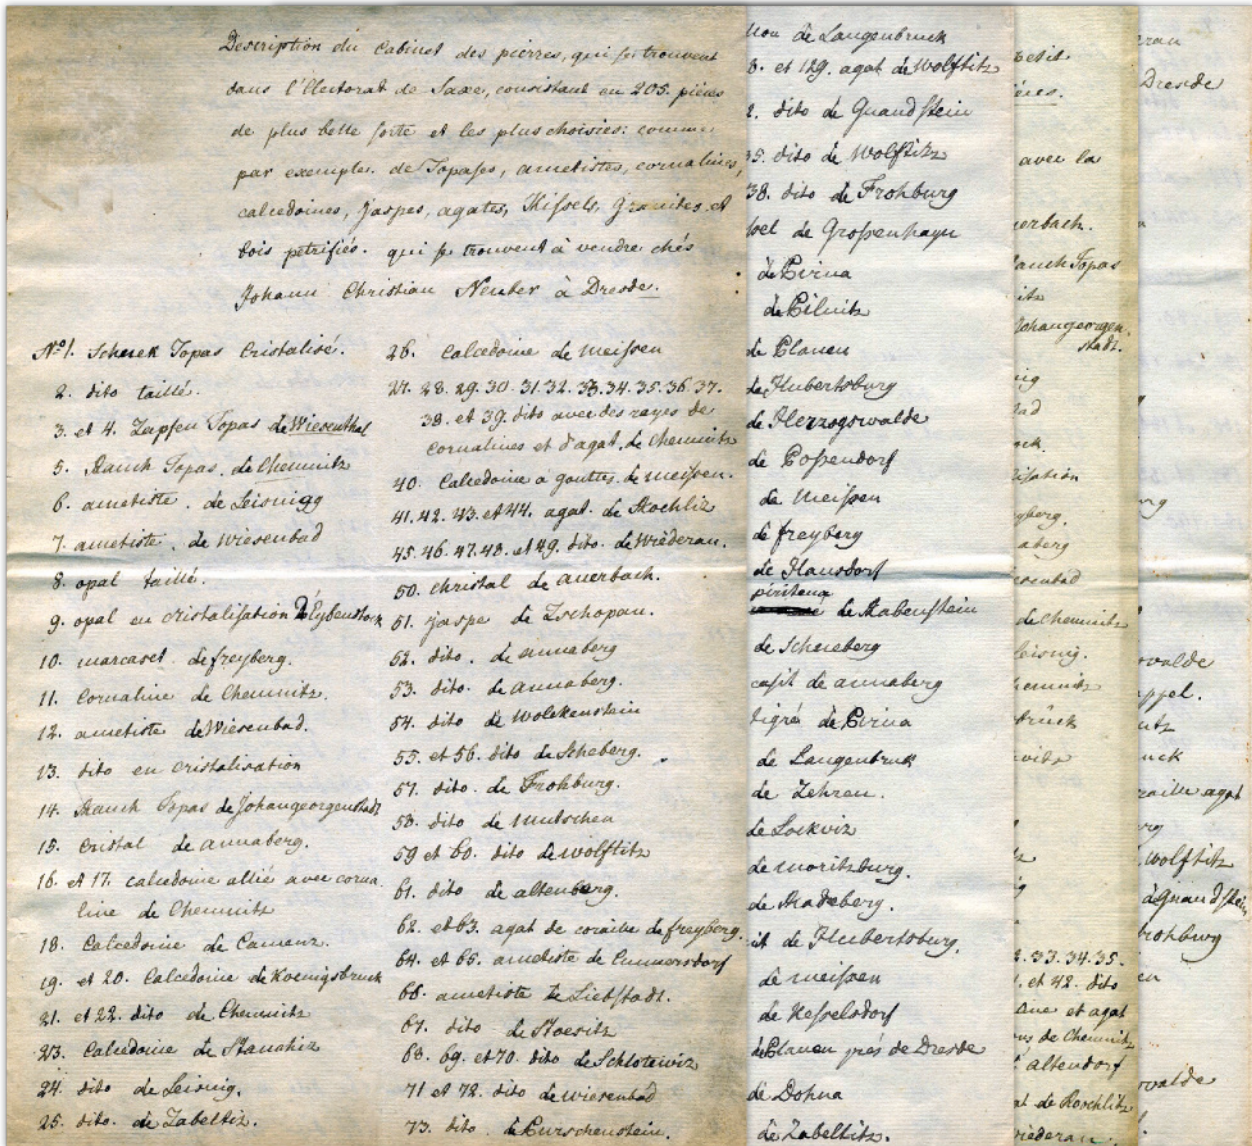 Description du Cabinet des pierres, qui se trouvent
dans l'Electorat de Saxe, consistant en 205. pièces
de plus belle sorte et les plus choisies: comme
par exemple. de Topases, ametistes, cornalines,
calcedoines, Jaspes, agates, Kissels, Granites, et
bois petrifiés. qui se trouvent à vendre chés
Johann Christian Neuber à Dresde.
No 1. Schnek Topas Cristalisé.
2. dito taillé.
3. et 4. Zapfen Topas de Wiesenthal
5. Rauch Topas. de Chemnitz
6. ametiste. de Leisnigg
7. ametiste. de Wiesenbad
8. opal taillé.
9. opal en cristalisation D'Eybenstock
10. marcaset. de freyberg.
11. Cornaline de Chemnitz.
12. ametiste de Wiesenbad.
13. dito en cristalisation
14. Rauch Topas de Johangeorgenstadt
15. Cristal de annaberg.
16. et 17. calcedoine allié avec corna
line de Chemnitz
18. Calcedoine de Camenz.
19. et 20. Calcedoine de Koenigsbruck
21. et 22. dito de Chemnitz
23. Calcedoine de
24. dito de Leisnig.
25. dito. de Zabeltiz.
26. Calcedoine de meissen
27. 28. 29. 30. 31. 32. 33. 34. 35. 36. 37.
38. et 39. dito avec des rayes de
cornalines et d'agat. de Chemnitz
40. Calcedoine a gouttes. de meissen.
41. 42. 43. et 44. agat. de Rochliz
45. 46. 47. 48. et 49. dito. de Wiederau.
50. christal de auerbach.
51. jaspe de Zschopau.
52. dito. de annaberg
53. dito. de annaberg.
54. dito de Wolckenstein
55. et 56. dito de Scheberg.
57. dito. de Frohburg.
58. dito de mutschen
59 et 60. dito de wolftitz
61. dito de altenberg.
62. et 63. agat de coraille de freyberg.
64. et 65. ametiste de Cunnersdorf
66. ametiste de Liebstadt.
67. dito de
68. 69. et 70. dito de Schlotewiz
71 et 72. dito de wiesenbad
73. dito de Purschenstein.
de Langenbruck
8. et 129. agat de Wolftitz
2. dito de Gnandstein
35. dito de Wolftitz
38. dito de Frohburg
de Grossenhayn
de Pirna
de Pilnitz
de Planen
de Hubertsburg
de Herzogswalde
de Possendorf
de Meissen
de freyberg
de Hausdorf
de Rabenstein
de Scheneberg
de annaberg
tigré de Pirna
de Langenbruk
de Zehren.
de Lockviz
de moritzburg.
de Radeberg.
de Hubertsburg.
de meissen
de Kesselsdorf
de Planen prés de Dresde
de Dohna
de Zabeltitz.
petit
avec la
erbach.
auch Topas
itz
Johangeorgen
stadt.
ig
ad
ck.
lisation
yberg.
aberg
esenbad
de Chemnitz
leisnig.
hemnitz
brück
witz
2. 33. 34. 35.
. et 42. dito
ine et agat
de Chemnitz
altendorf
at de Rochlitz
wiederau.
rau
Dresde
rg
walde
ppel.
utz
uck
raille agat
rg
wolftitz
de Gnandstein
frohburg
en
walde